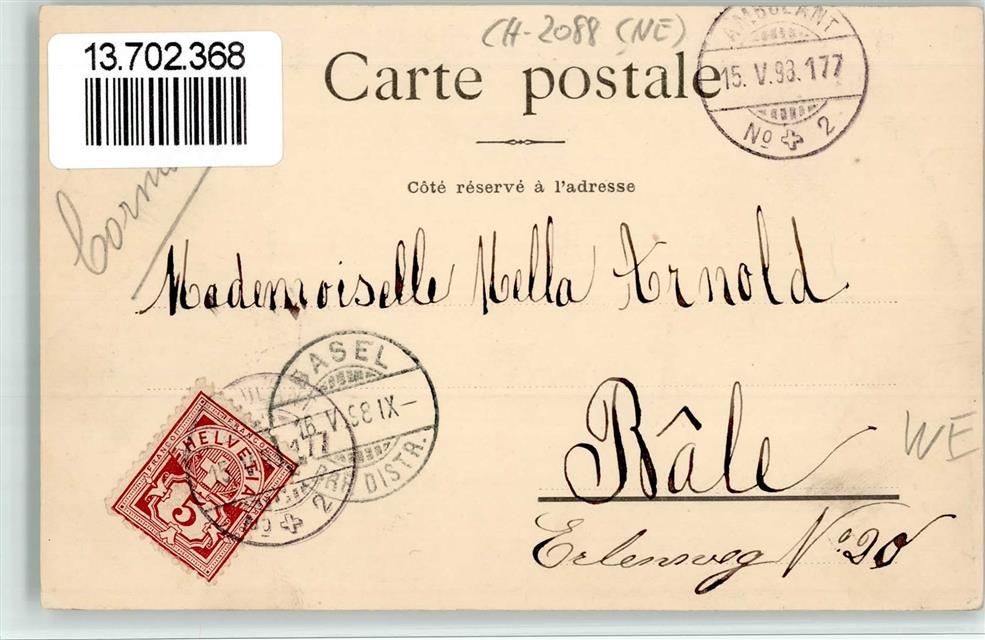 13.702.368
CH-2088 (NE)
AMBULANT
15. V. 98. 177
No 2
Carte postale
Côté réservé à l'adresse
Mademoiselle Mella Arnold
BASEL
16. V. 98 IX–
DISTR.
177
No 2
HELVETIA
FRANCO
5
Bâle
WE
Erlenweg No. 20